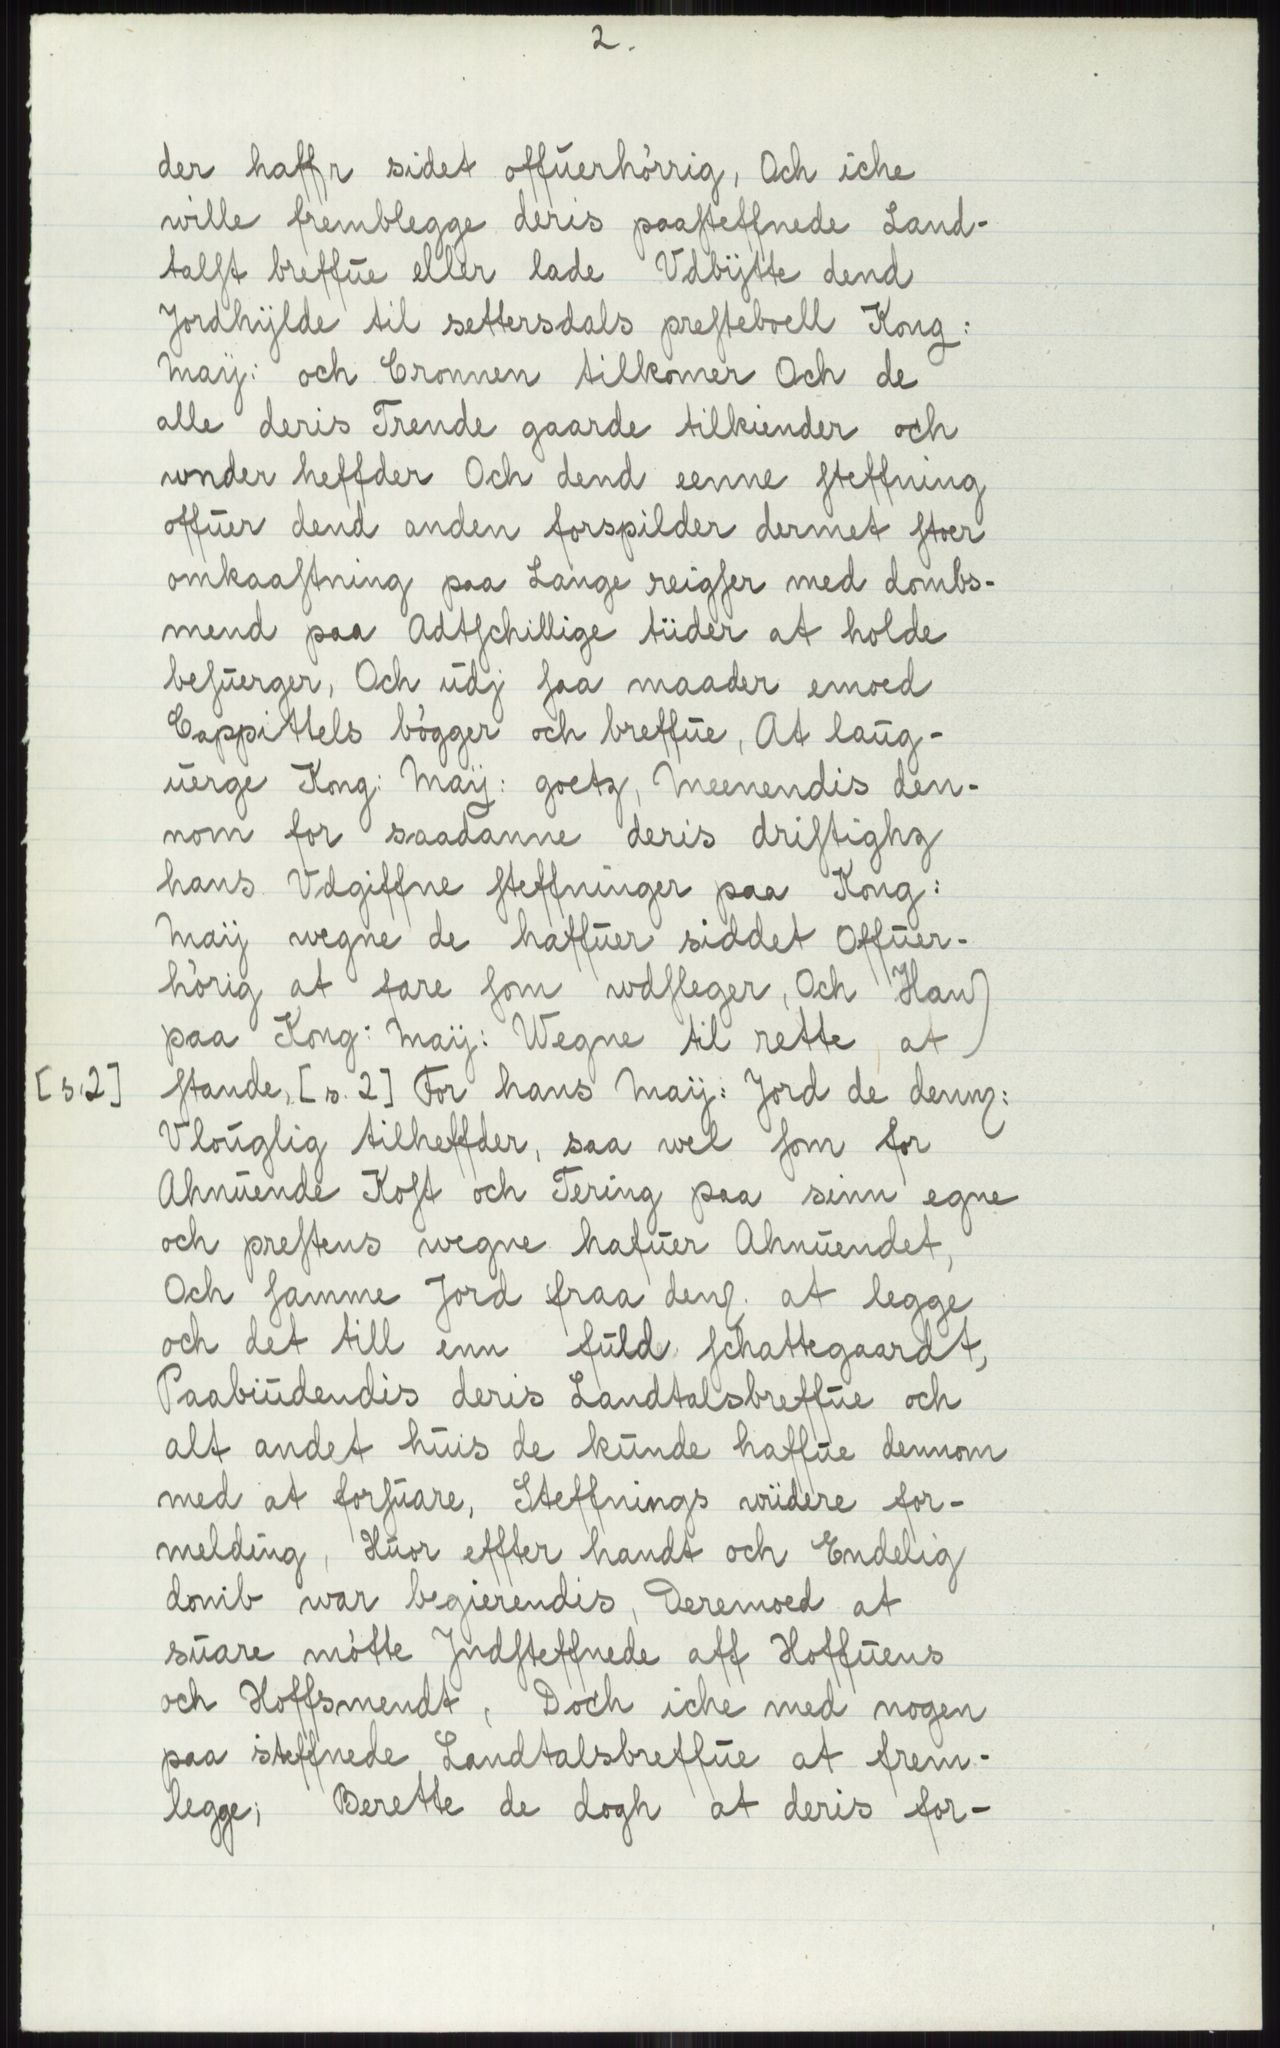 2.
der haffr sidet offŭerhörrig, Och iche
wille fremblegge deris paasteffnede Land-
talst breffŭe eller lade Vdbÿtte dend
Jordhÿlde til settersdals presteboell Kong:
Maÿ: och Cronnen tilkomer Och de
alle deris Trende gaarde tilkiender och
wnder heffder Och dend eenne steffning
offŭer dend anden forspilder dermet stoer
omkaastning paa Lange reigser med dombs-
mend paa Adtschillige tiider at holde
besŭerger, Och ŭdj saa maader emoed
Cappittels bögger och breffŭe, At laŭg-
ŭerge Kong: Maÿ: goetz, Meenendis den-
nom for saadanne deris dristighz
hans Vdgiffne steffninger paa Kong:
Maÿ wegne de haffŭer siddet Offŭer-
hörig at fare som wdsleger, Och Han
paa Kong: Maÿ: Wegne til rette at
[s.2] stande, [s. 2] For hans Maÿ: Jord de denn:
Vloŭglig tilheffder, saa wel som for
Ahnŭende Kost och Tering paa sinn egne
och prestens wegne hafŭer Ahnŭendet,
Och samme Jord fraa den at legge
och det till enn fŭld schattegaardt,
Paabiŭdendis deris Landtalsbreffŭe och
alt andet hŭis de kŭnde haffŭe dennom
med at forsŭare, Steffnings wiidere for-
melding, Hŭor effter handt och Endelig
domb war begierendis, Deremoed at
sŭare mötte Jndsteffnede aff Hoffŭens
och Hoffsmendt, Doch iche med nogen
paa steffnede Landtalsbreffŭe at frem-
legge; Berette de dogh at deris for-